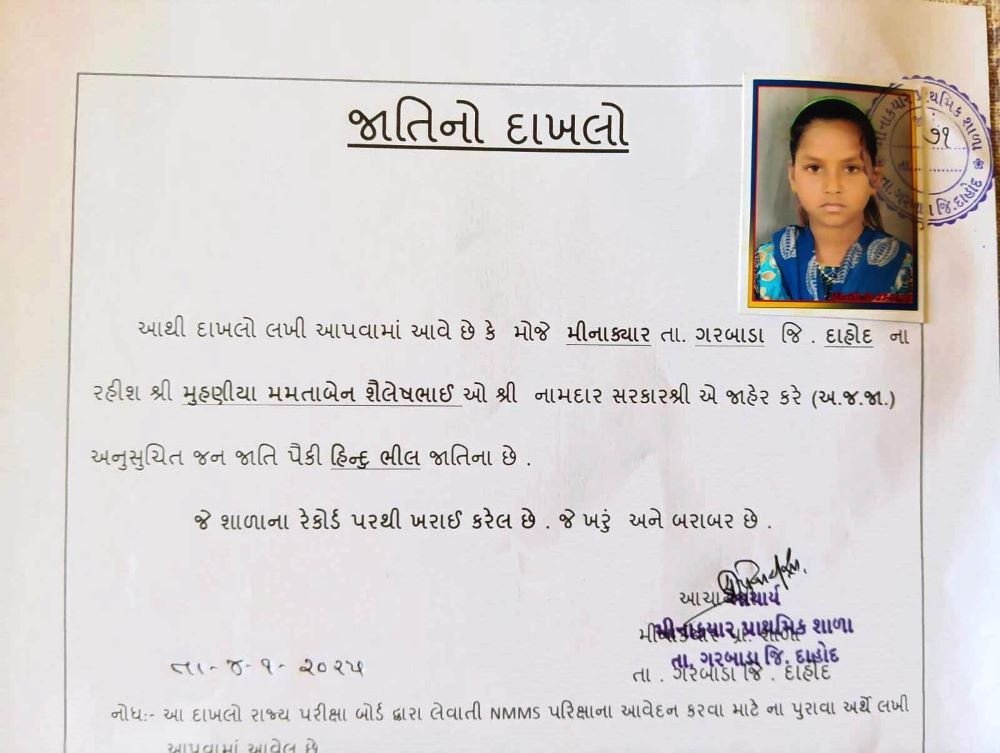 જાતિનો દાખલો
મીનાક્યાર પ્રાથમિક શાળા
૭૧
તા.
તા. ગરબાડા જિ. દાહોદ
આથી દાખલો લખી આપવામાં આવે છે કે મોજે મીનાક્યાર તા. ગરબાડા જિ . દાહોદ ના
રહીશ શ્રી મુહણીયા મમતાબેન શૈલેષભાઈ ઓ શ્રી નામદાર સરકારશ્રી એ જાહેર કરે (અ.જ.જા.)
અનુસુચિત જન જાતિ પૈકી હિન્દુ ભીલ જાતિના છે .
જે શાળાના રેકોર્ડ પરથી ખરાઈ કરેલ છે . જે ખરું અને બરાબર છે .
આચાર્ય
મીનાક્યાર પ્રાથમિક શાળા
તા. ગરબાડા જિ. દાહોદ
તા . ગરબાડા જિ . દાહોદ
તા-૪-૧-૨૦૨૫
નોધ:- આ દાખલો રાજ્ય પરીક્ષા બોર્ડ દ્વારા લેવાતી NMMS પરિક્ષાના આવેદન કરવા માટે ના પુરાવા અર્થે લખી
આપવામાં આવેલ છે